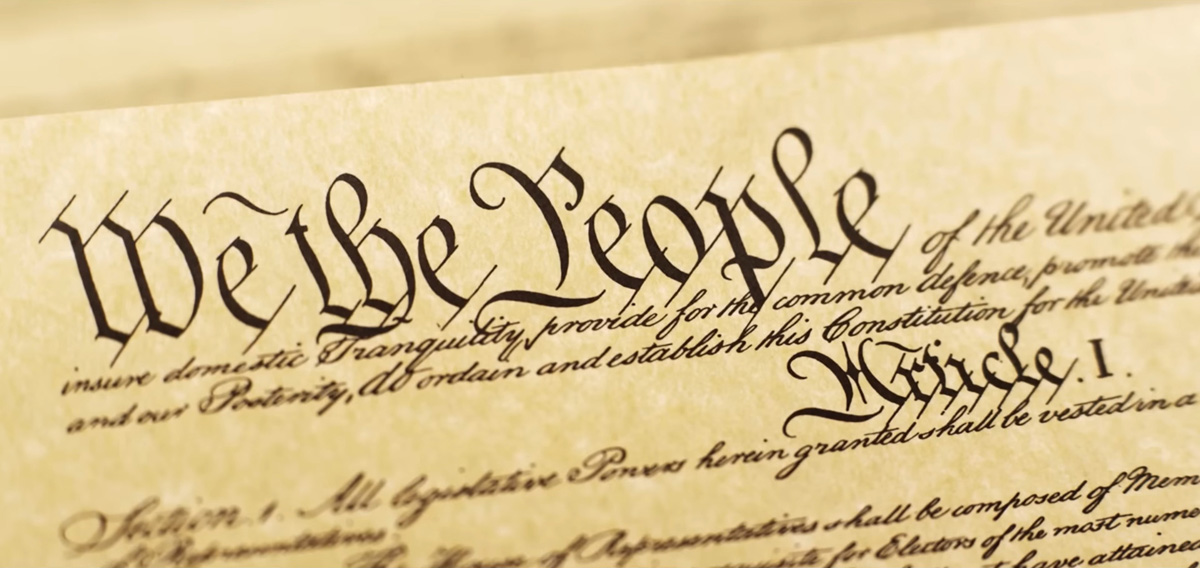 We the People of the United
insure domestic Tranquility, provide for the common defence, promote the
and our Posterity, do ordain and establish this Constitution for the United
Article. I.
Section. 1. All legislative Powers herein granted shall be vested in a
of Representatives.
The House of Representatives shall be composed of Mem
for Electors of the most nume
have attained